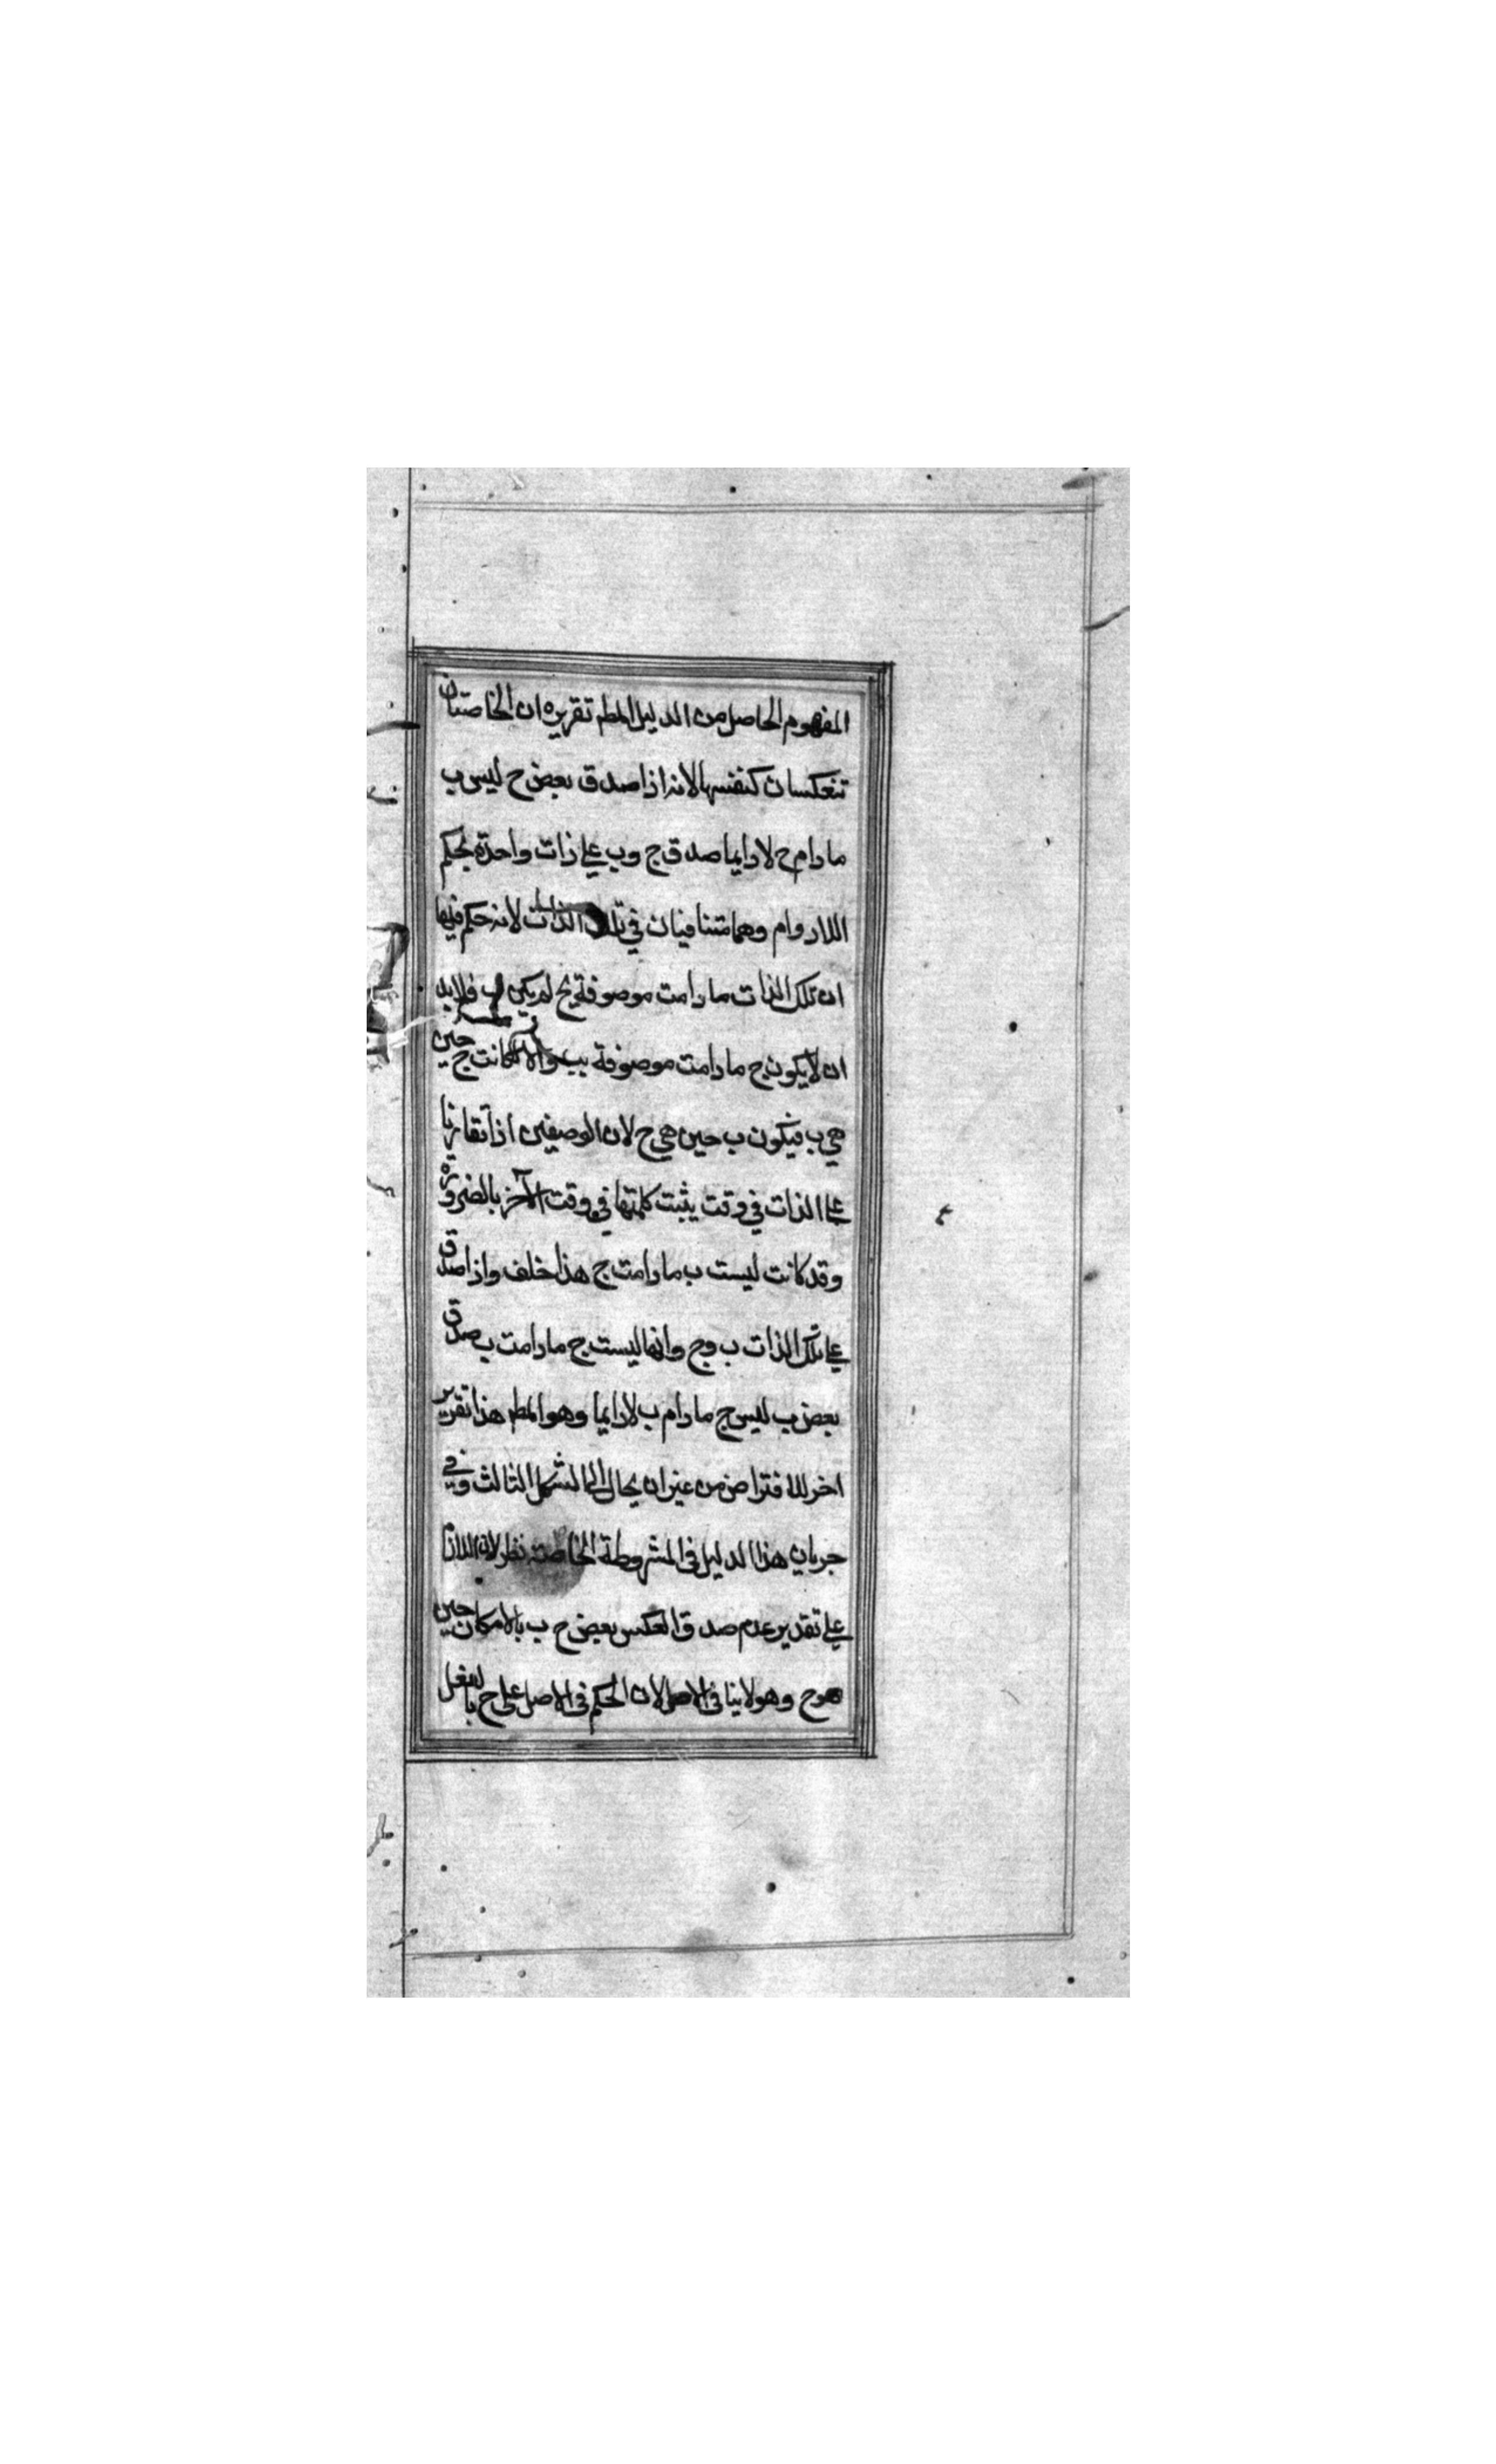 المفهوم الحاصل من الدليل المط تقريره ان الخاصتان
تنعكسان كنفسها لانه اذا صدق بعض ج ليس ب
ما دام ج لا دايما صدق ج و ب على ذات واحدة بحكم
اللادوام وهما متنافيان في تلك الذات لانه حكم فيها
ان تلك الذات ما دامت موصوفة بج لم يكن ب فلابد
ان لا يكون ج ما دامت موصوفة بب والا لكانت ج حين
هي ب فيكون ب حين هي ج لان الوصفين اذا تقارنا
على الذات في وقت يثبت كل منهما في وقت الآخر بالضرورة
وقد كانت ليست ب ما دامت ج هذا خلف واذا صدق
على تلك الذات ب وج وانها ليست ج ما دامت ب صدق
بعض ب ليس ج ما دام ب لا دايما وهو المط هذا تقرير
اخر للافتراض من غير ان يحال الى الشكل الثالث وفي
جريان هذا الدليل في المشروطة الخاصة نظر لان اللازم
على تقدير عدم صدق العكس بعض ج ب بالامكان حين
هو ج وهو لا ينافي الاصل لان الحكم في الاصل على ج بالفعل